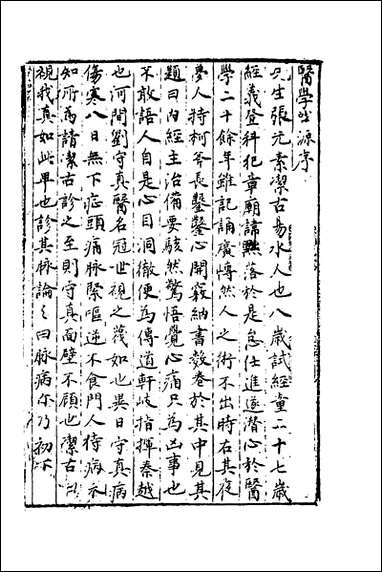 醫學啓源序
先生張元素潔古易水人也八歲試經童二十七歲
經義登科犯章廟諱黜落於是怠仕進遂潛心於醫
學二十餘年雖記誦廣博然人之術不出時右其夜
夢人持柯斧長鑿鑿心開竅納書數卷於其中見其
題曰内經主治備要駭然驚悟覺心痛只為凶事也
不敢語人自是心目洞徹便為傳道軒岐指揮秦越
也河間劉守真醫名冠世視之蔑如也異日守真病
傷寒八日無下症頭痛脉緊嘔逆不食門人侍病未
知所為請潔古診之至則守真面壁不顧也潔古曰
視我真如此卑也診其脉論之曰脉病尓乃初